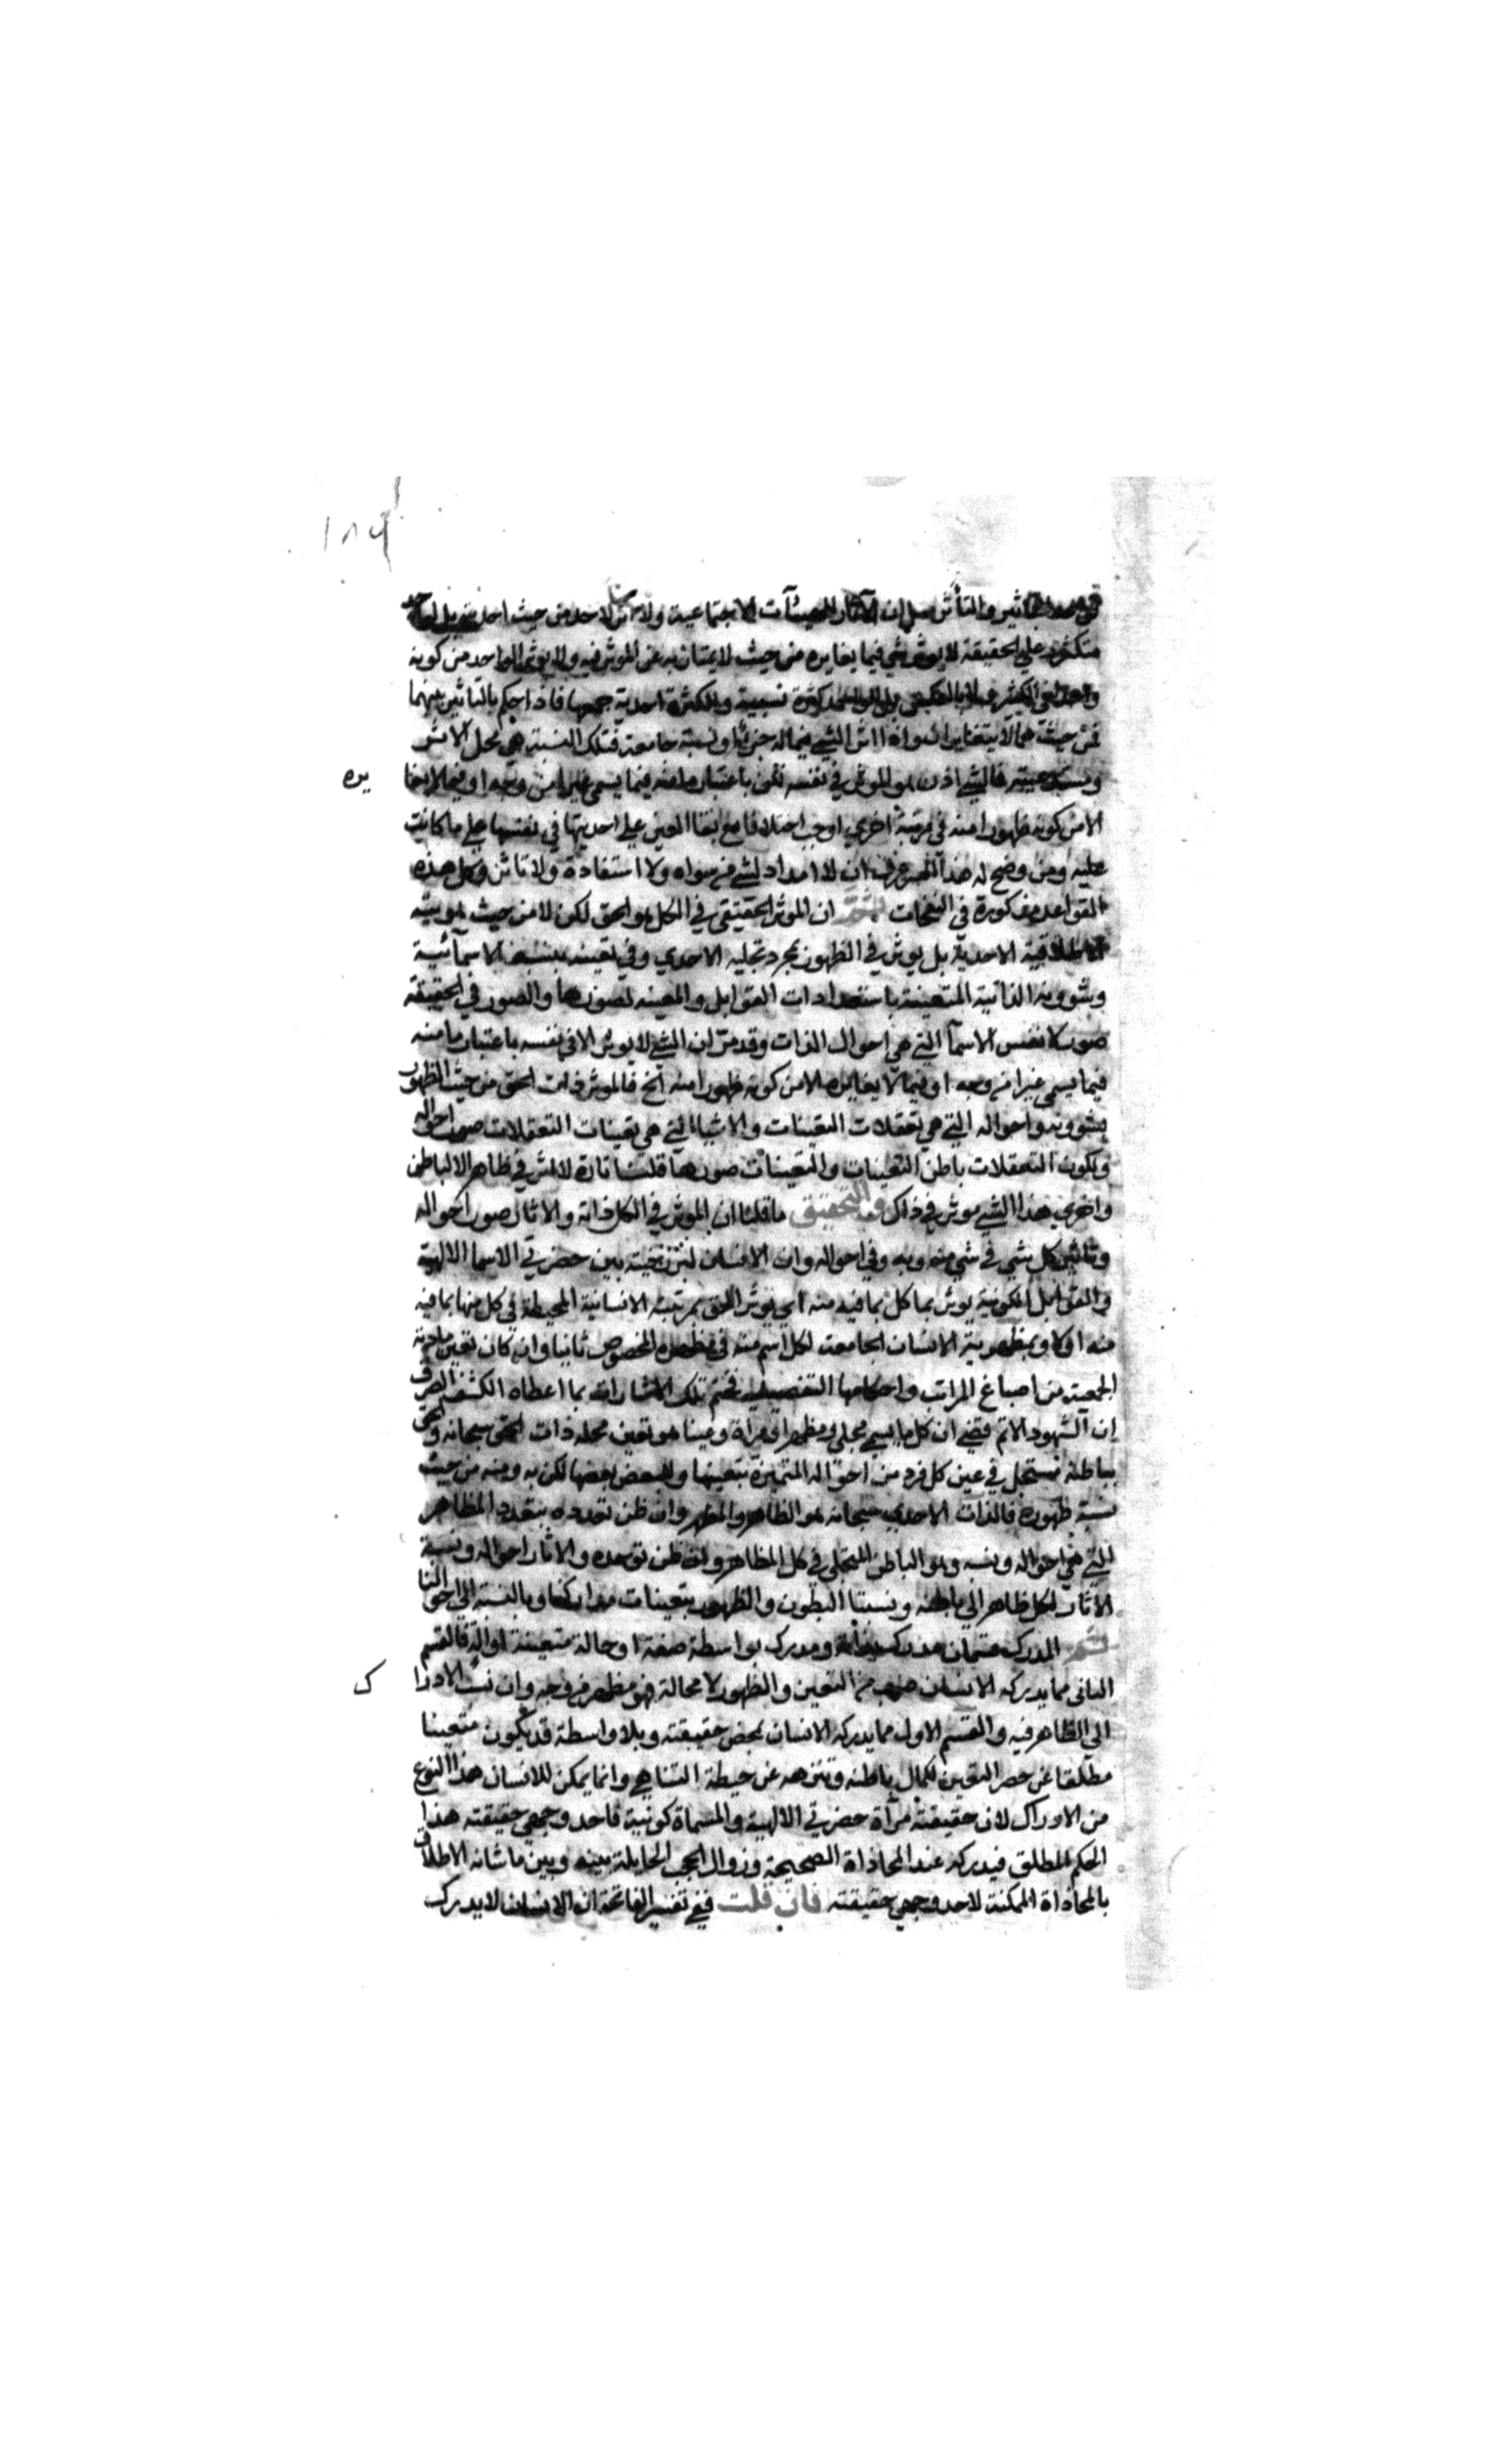 ١٨٩
والتأثر سلم ان الآثار للهيئات الاجتماعية ولا اثر لاحد من حيث احديته بل
متكثر على الحقيقة لا يؤثر شي فيما يغايره من حيث لا يمتاز به عن المؤثر فيه ولا يؤثر الواحد من كونه
واحدا في الكثير كثرة نسبية وللكثرة احدية جمعها فاذا حكم بالتاثير بينهما
فمن حيث هما لا يتغايران واذا اثر الشي فيما له جزئيا ونسبة جامعة فتلك النسبة هي محل الاثر
ومستدعيته فالشي اذن هو المؤثر في نفسه لكن باعتبار ما منه فيما يسمى غيرا من وجه او فيما لا يغا يره
الا من كونه ظهورا منه في مرتبة اخرى اوجب اختلافا مع بقا العين على احديتها في نفسها على ما كانت
عليه ومن وضح له هذا عرف ان لا امداد لشي من سواه ولا استفادة ولا تاثر وكل هذه
القواعد مذكورة في النفحات ثم ان المؤثر الحقيقي في الكل هو الحق لكن لا من حيث هويته
الاطلاقية الاحدية بل يؤثر في الظهور بمجرد تجليه الاحدي وفي تعينه بنسبه الاسمآئية
وشوونه الذاتية المتعينة باستعدادات القوابل والمعينه لصورها والصور في الحقيقة
صور لانفس الاسمآ التي هي احوال الذات وقد مر ان الشي لا يؤثر الا في نفسه باعتبار ما منه
فيما يسمى غيرا من وجه او فيما لا يغايره الا من كونه ظهورا منه الخ فالمؤثر ذات الحق من حيث الظهور
بشوونه واحواله التي هي تعقلات التعينات والاشيا التي هي تعينات التعقلات صور احواله
ولكون التعقلات باطن التعينات والتعينات صورها قلنا تارة لا اثر في ظاهر الا لباطن
واخرى هذا الشي مؤثر في ذلك والتحقيق ما قلنا ان المؤثر في الكل ذاته والاثار صور احواله
وتاثير كل شي في شي منه وبه وفي احواله وان الانسان لبرزخيته بين حضرتي الاسما الالهية
والقوابل الكونية يؤثر بما كل بما فيه منه اي يؤثر الحق بمرتبته الانسانية المحيطة في كل منها بما فيه
منه اولا وبمظهرية الانسان الجامعة لكل اسم منه في مظهره المخصوص ثانيا وان كان تعين مادته
الجمعية من اصباغ المراتب واحكامها التفصيلية فختم تلك الاشارات بما اعطاه الكشف الصرف
ان الشهود الاتم قضى ان كل ما يسمى مجلى ومظهرا ومرآة وعينا هو تعين محله ذات الحق سبحانه وهو
بباطنه مستجل في عين كل فرد من احواله المتميزة بتعينها ولبعض بعضها لكن به ومنه من حيث
نسبة ظهوره فالذات الاحدي سبحانه هو الظاهر والمظهر وان ظن تعدده بتعدد المظاهر
التي هي احواله ونسبه وهو الباطن المتجلي في كل المظاهر وان ظن توحده والاثار احواله ونسبة
الاثار لكل ظاهر الى باطنه ونسبتا البطون والظهور بتعينات مداركنا وبالنسبة الى احوالنا
ثم المدرك قسمان مدرك بذاته ومدرك بواسطة صفة او حالة متعينة او الة فالقسم
الثاني مما يدركه الانسان ضرب من التعين والظهور لا محالة فهو مظهر من وجه وان نسب الادرا ك
الى الظاهر فيه والقسم الاول مما يدركه الانسان بمحض حقيقته وبلا واسطة قد يكون متعينا
مطلقا عن حصر التعين لكمال باطنه وتنزهه عن حيطة التناهي وانما يمكن للانسان هذا النوع
من الادراك لان حقيقته مرآة حضرتي الالهية والمسماة كونية فاحد وجهي حقيقته هذا
الحكم المطلق فيدركه عند المحاذاة الصحيحة وزوال الحجب الحايلة بينه وبين ما شانه الاطلاق
بالمحاذاة الممكنة لاحد وجهي حقيقته فان قلت ففي تفسير الفاتحة ان الانسان لا يدرك